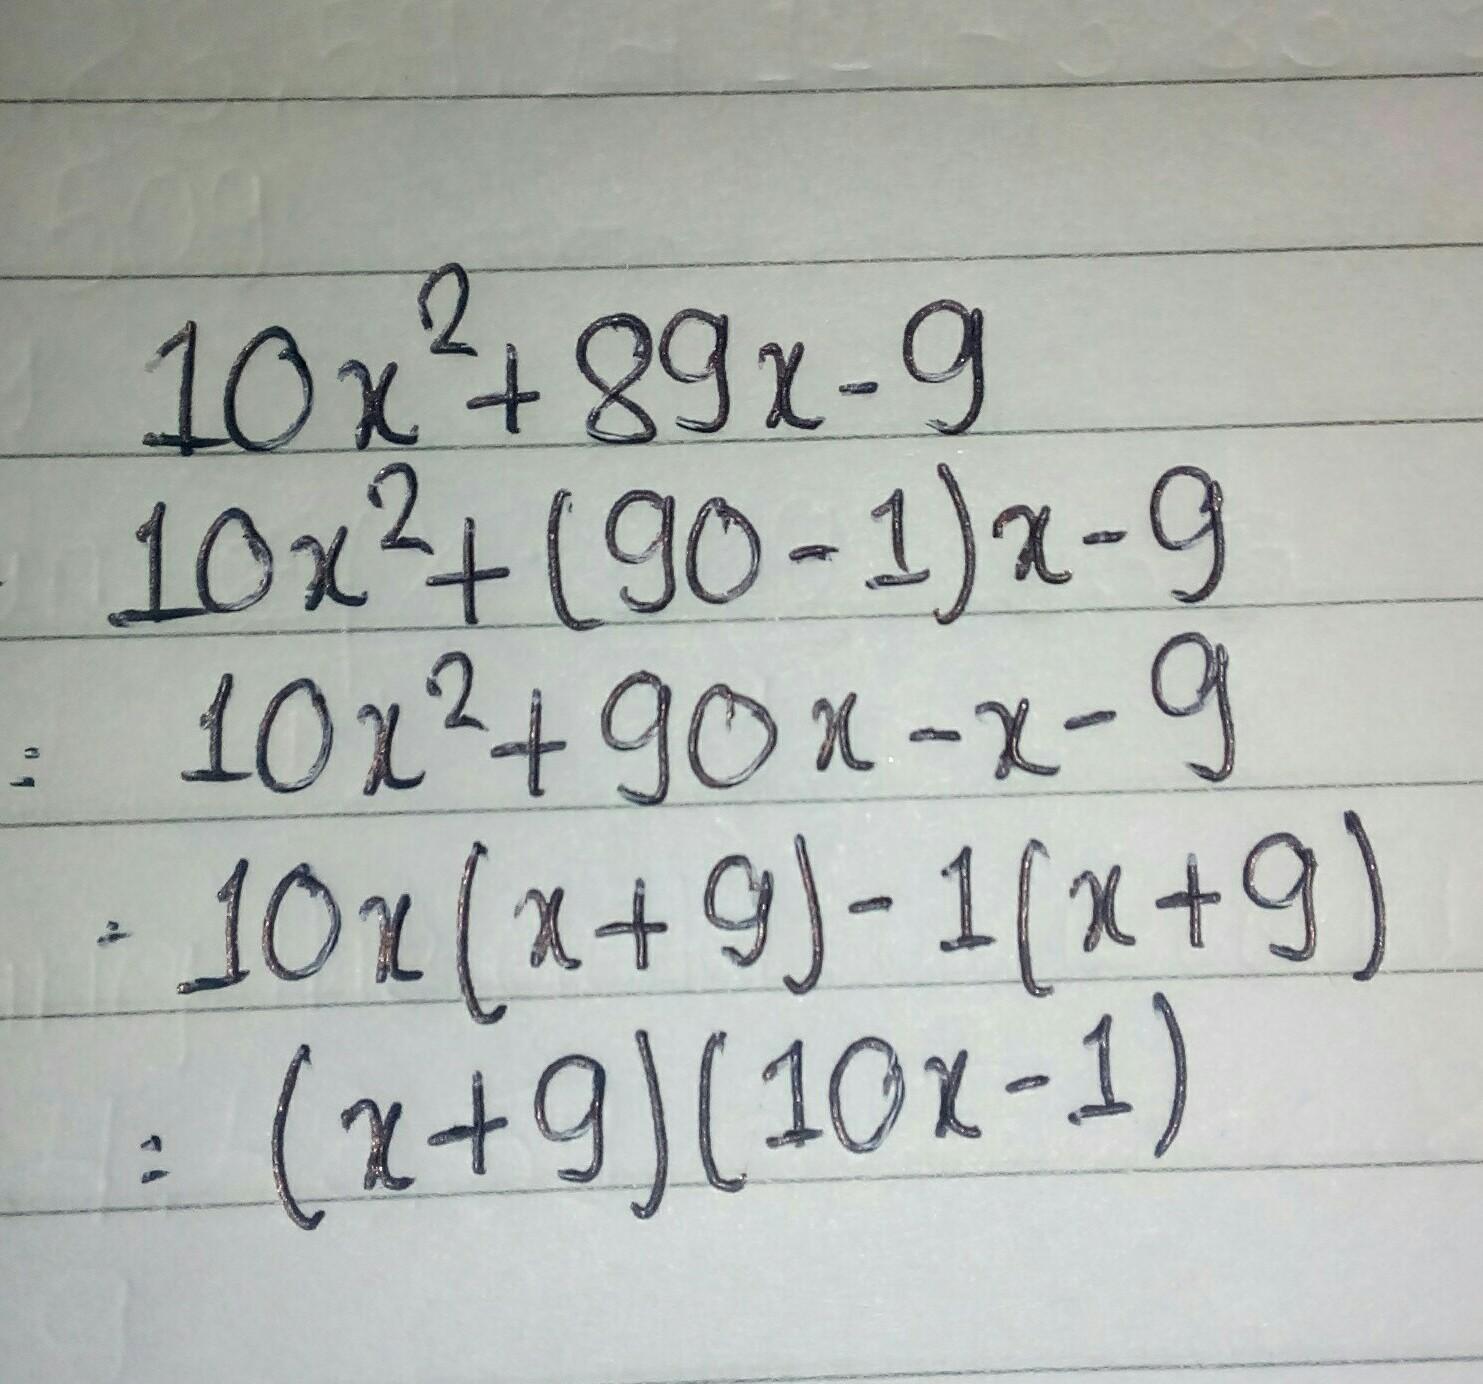 10x²+89x-9
10x²+(90-1)x-9
= 10x²+90x-x-9
= 10x(x+9)-1(x+9)
= (x+9)(10x-1)